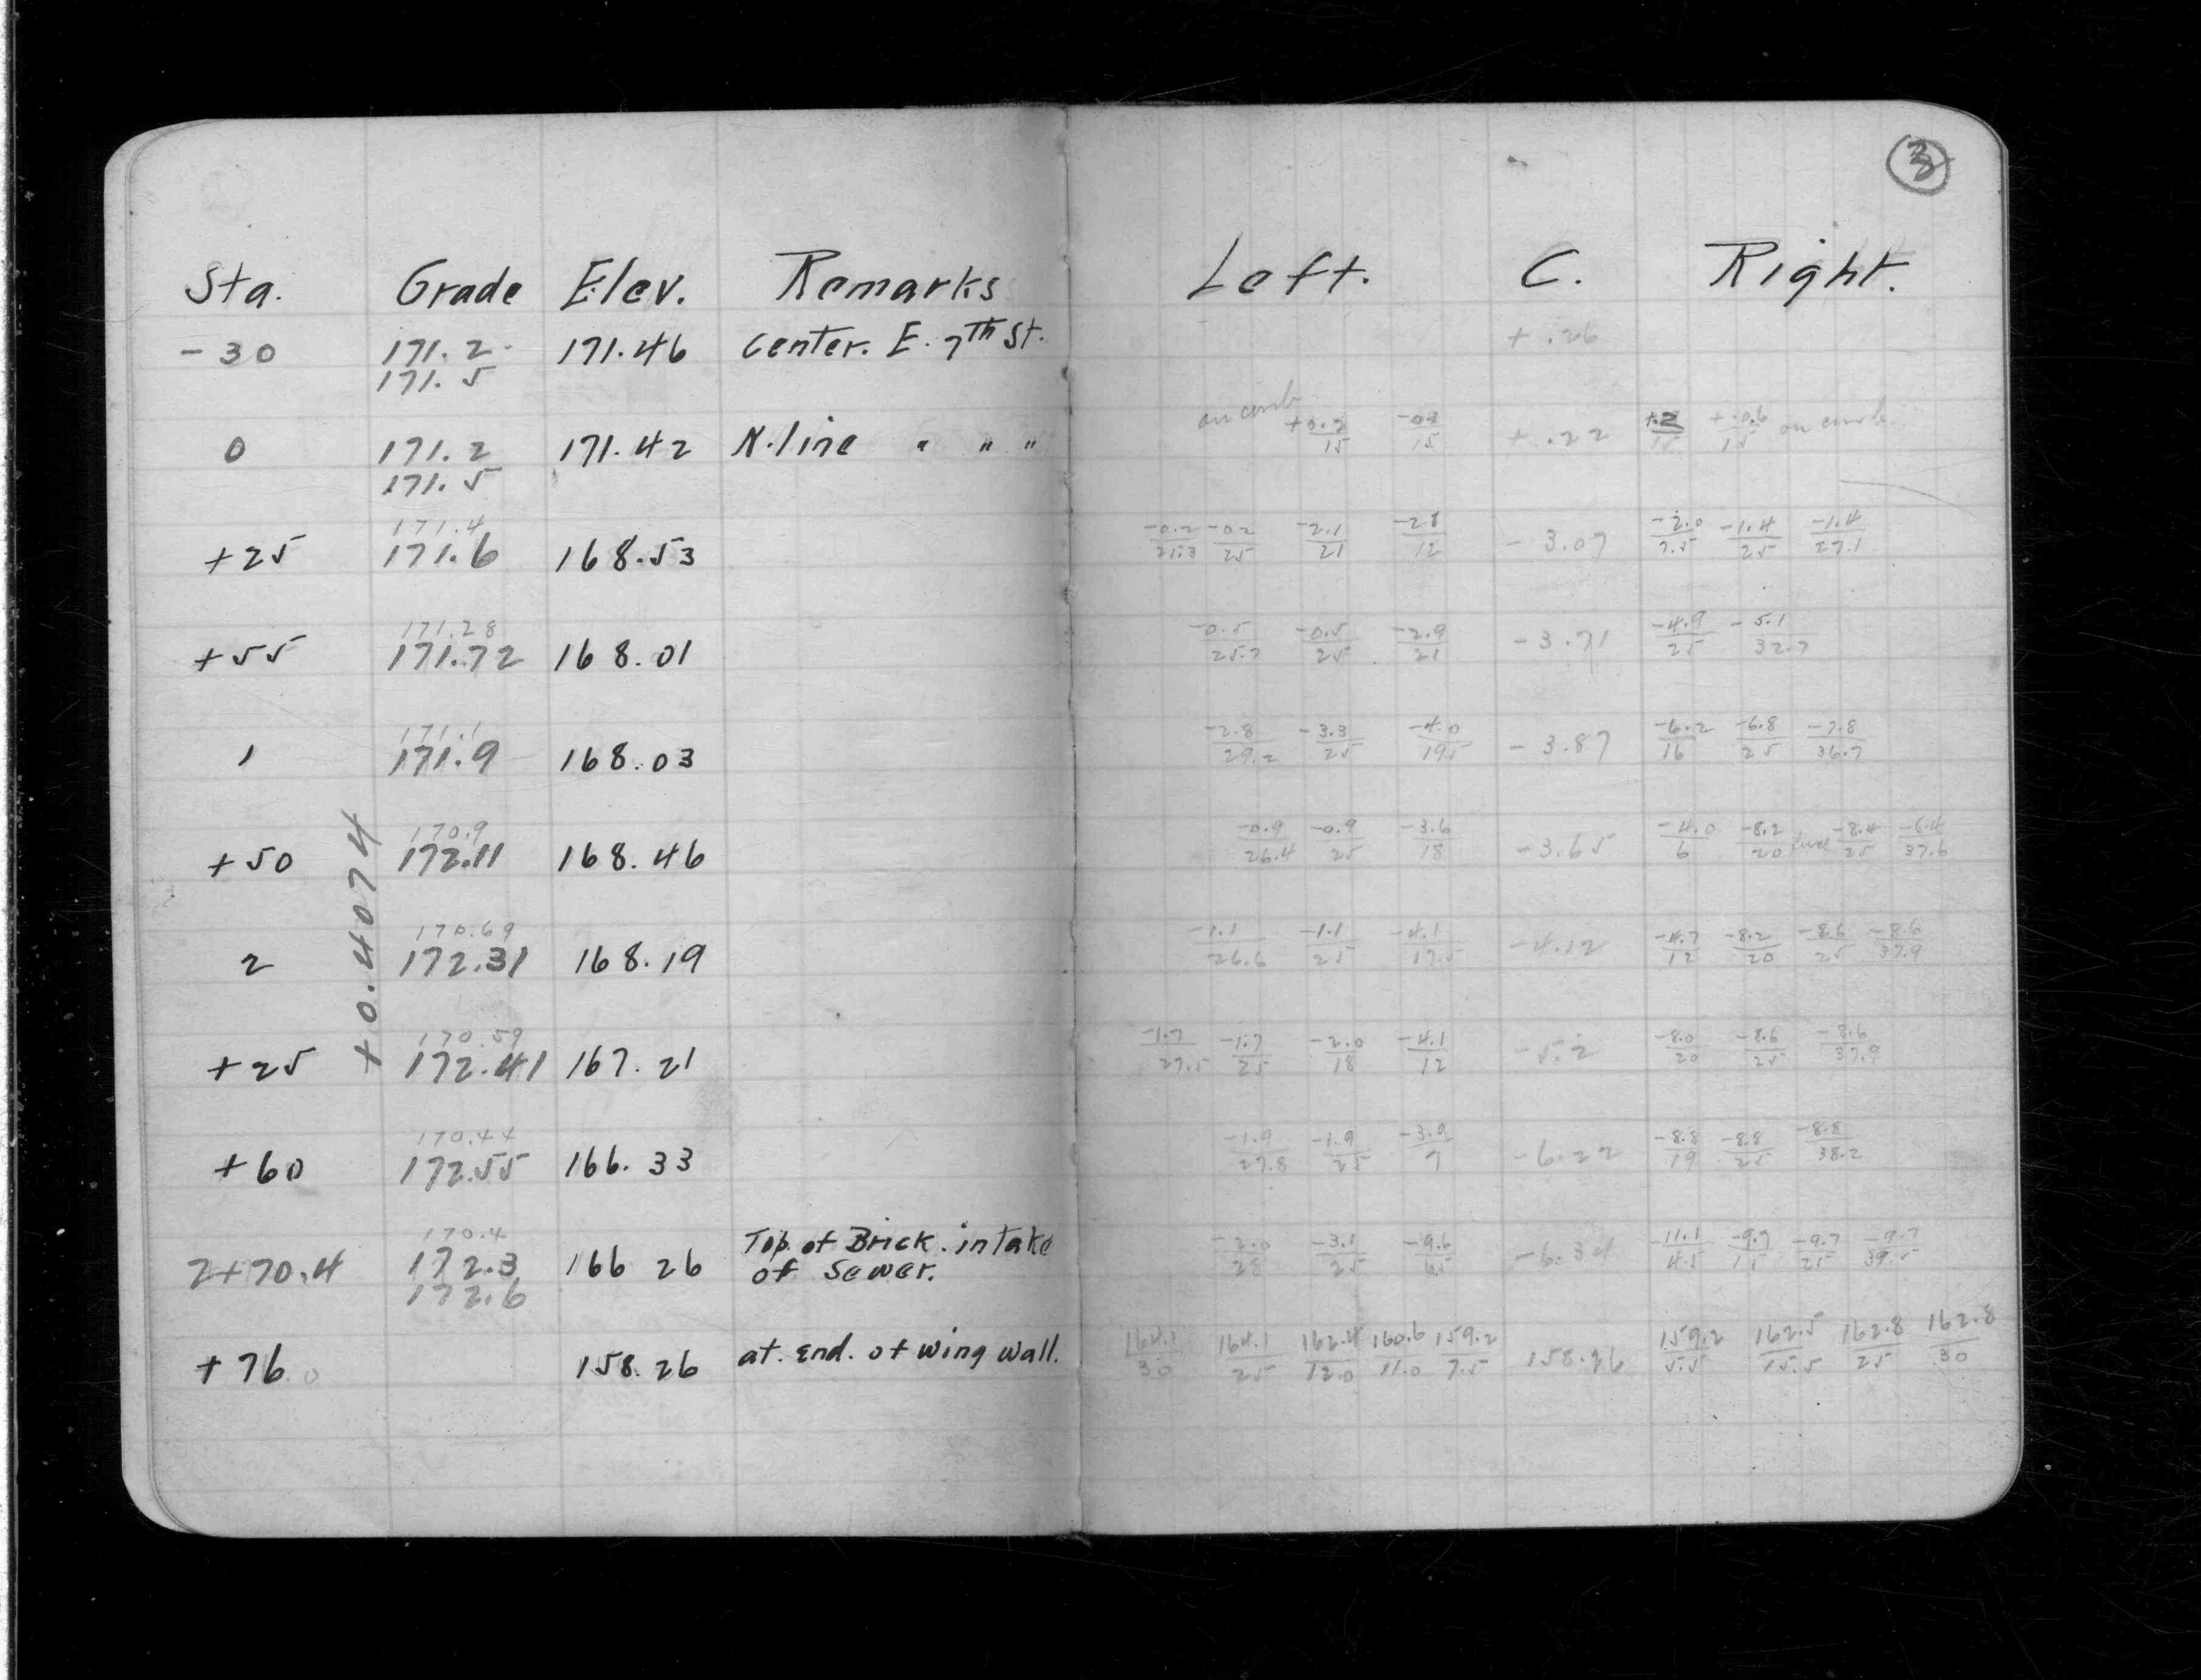 3
Sta. Grade Elev. Remarks Left. C. Right.
-30 171.2 171.46 Center. E. 7th St. + .26
171.5
on curb +0.2/15 15 + .22 +.2/15 +.0.6/15 on curb
0 171.2 171.42 N. line " " "
171.5
171.4
+25 171.6 168.53 -0.2/21.3 -0.2/25 -2.1/21 -2.8/12 - 3.07 -2.0/7.5 -1.4/25 -1.4/27.1
171.28
+55 171.72 168.01 -0.5/25.7 -0.5/25 -2.9/21 - 3.71 -4.9/25 -5.1/32.7
171.1
1 171.9 168.03 -2.8/29.2 -3.3/25 -4.0/19.5 - 3.87 -6.2/16 -6.8/25 -7.8/36.7
170.9
+50 172.11 168.46 -0.9/26.4 -0.9/25 -3.6/18 -3.65 -4.0/6 -8.2/20 -8.4/25 -8.4/37.6
170.69
2 172.31 168.19 -1.1/26.6 -1.1/25 -4.1/17.5 -4.12 -4.7/12 -8.2/20 -8.6/25 -8.6/37.9
+0.4074
170.59
+25 172.41 167.21 -1.7/27.5 -1.7/25 -2.0/18 -4.1/12 -5.2 -8.0/20 -8.6/25 -8.6/37.9
170.44
+60 172.55 166.33 -1.9/27.8 -1.9/25 -3.9/7 -6.22 -8.8/19 -8.8/25 -8.8/38.2
170.4
2+70.4 172.3 166 26 Top of Brick. intake -2.0/28 -3.1/25 -9.6/6.5 -6.34 -11.1/4.5 -9.7/15 -9.7/25 -9.7/39.5
172.6 of Sewer.
+76.0 158.26 at. End. of wing wall. 164.1/30 164.1/25 162.4/12.0 160.6/11.0 159.2/7.5 158.26 159.2/5.5 162.5/15.5 162.8/25 162.8/30